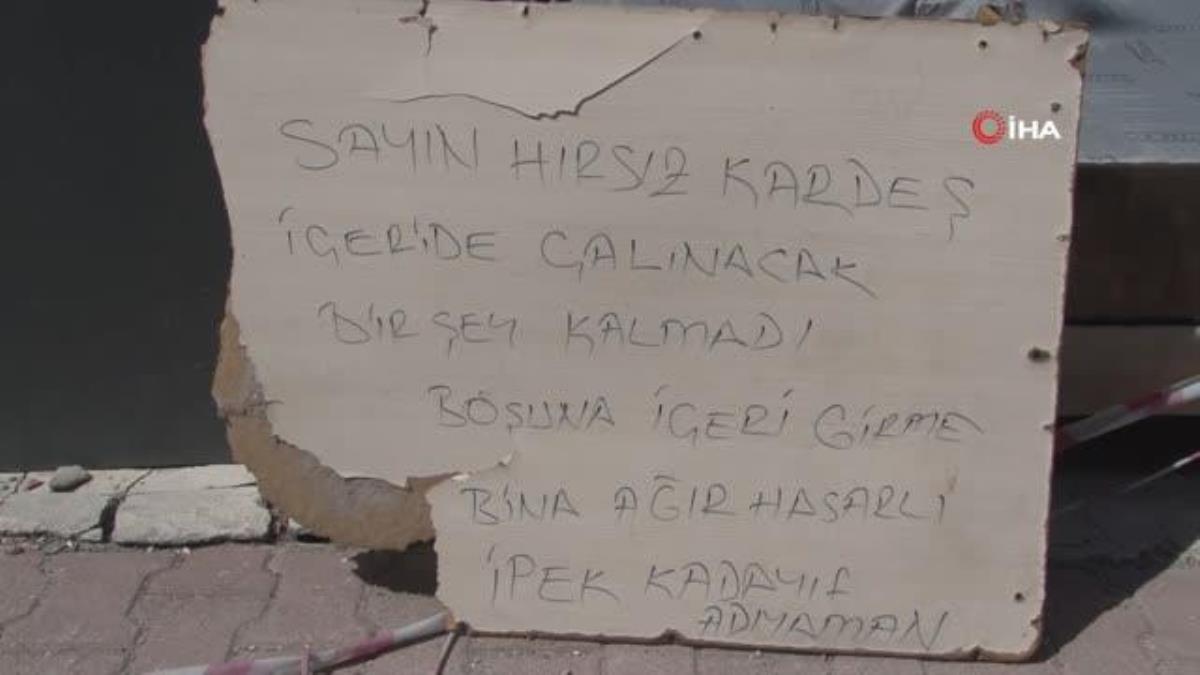 İHA
SAYIN HIRSIZ KARDEŞ
İÇERİDE ÇALINACAK
BİRŞEY KALMADI
BOŞUNA İÇERİ GİRME
BİNA AĞIR HASARLI
İPEK KADAYIF
ADIYAMAN